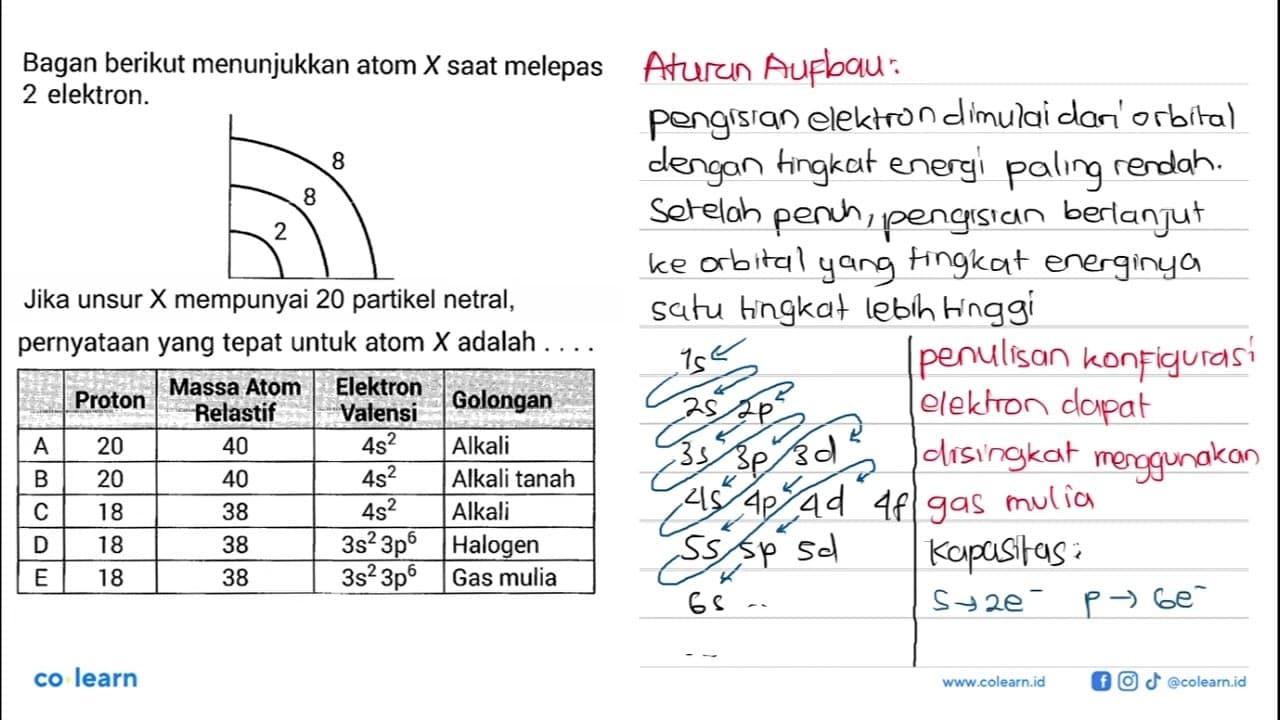 Bagan berikut menunjukkan atom X saat melepas
2 elektron.
8
8
2
Jika unsur X mempunyai 20 partikel netral,
pernyataan yang tepat untuk atom X adalah . . . .
Proton Massa Atom Relastif Elektron Valensi Golongan
A 20 40 4s² Alkali
B 20 40 4s² Alkali tanah
C 18 38 4s² Alkali
D 18 38 3s² 3p⁶ Halogen
E 18 38 3s² 3p⁶ Gas mulia
co learn
Aturan Aufbau:
pengisian elektron dimulai dari orbital
dengan tingkat energi paling rendah.
Setelah penuh, pengisian berlanjut
ke orbital yang tingkat energinya
satu tingkat lebih tinggi
1s
2s 2p
3s 3p 3d
4s 4p 4d 4f
5s 5p 5d
6s ..
...
penulisan konfigurasi
elektron dapat
disingkat menggunakan
gas mulia
Kapasitas:
s → 2e⁻ p → 6e⁻
www.colearn.id @colearn.id